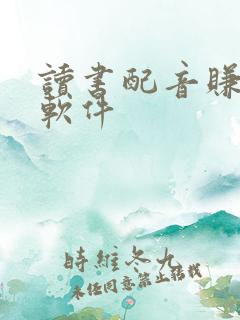 讀書配音賺
軟件
時維冬九
未经同意禁止转载